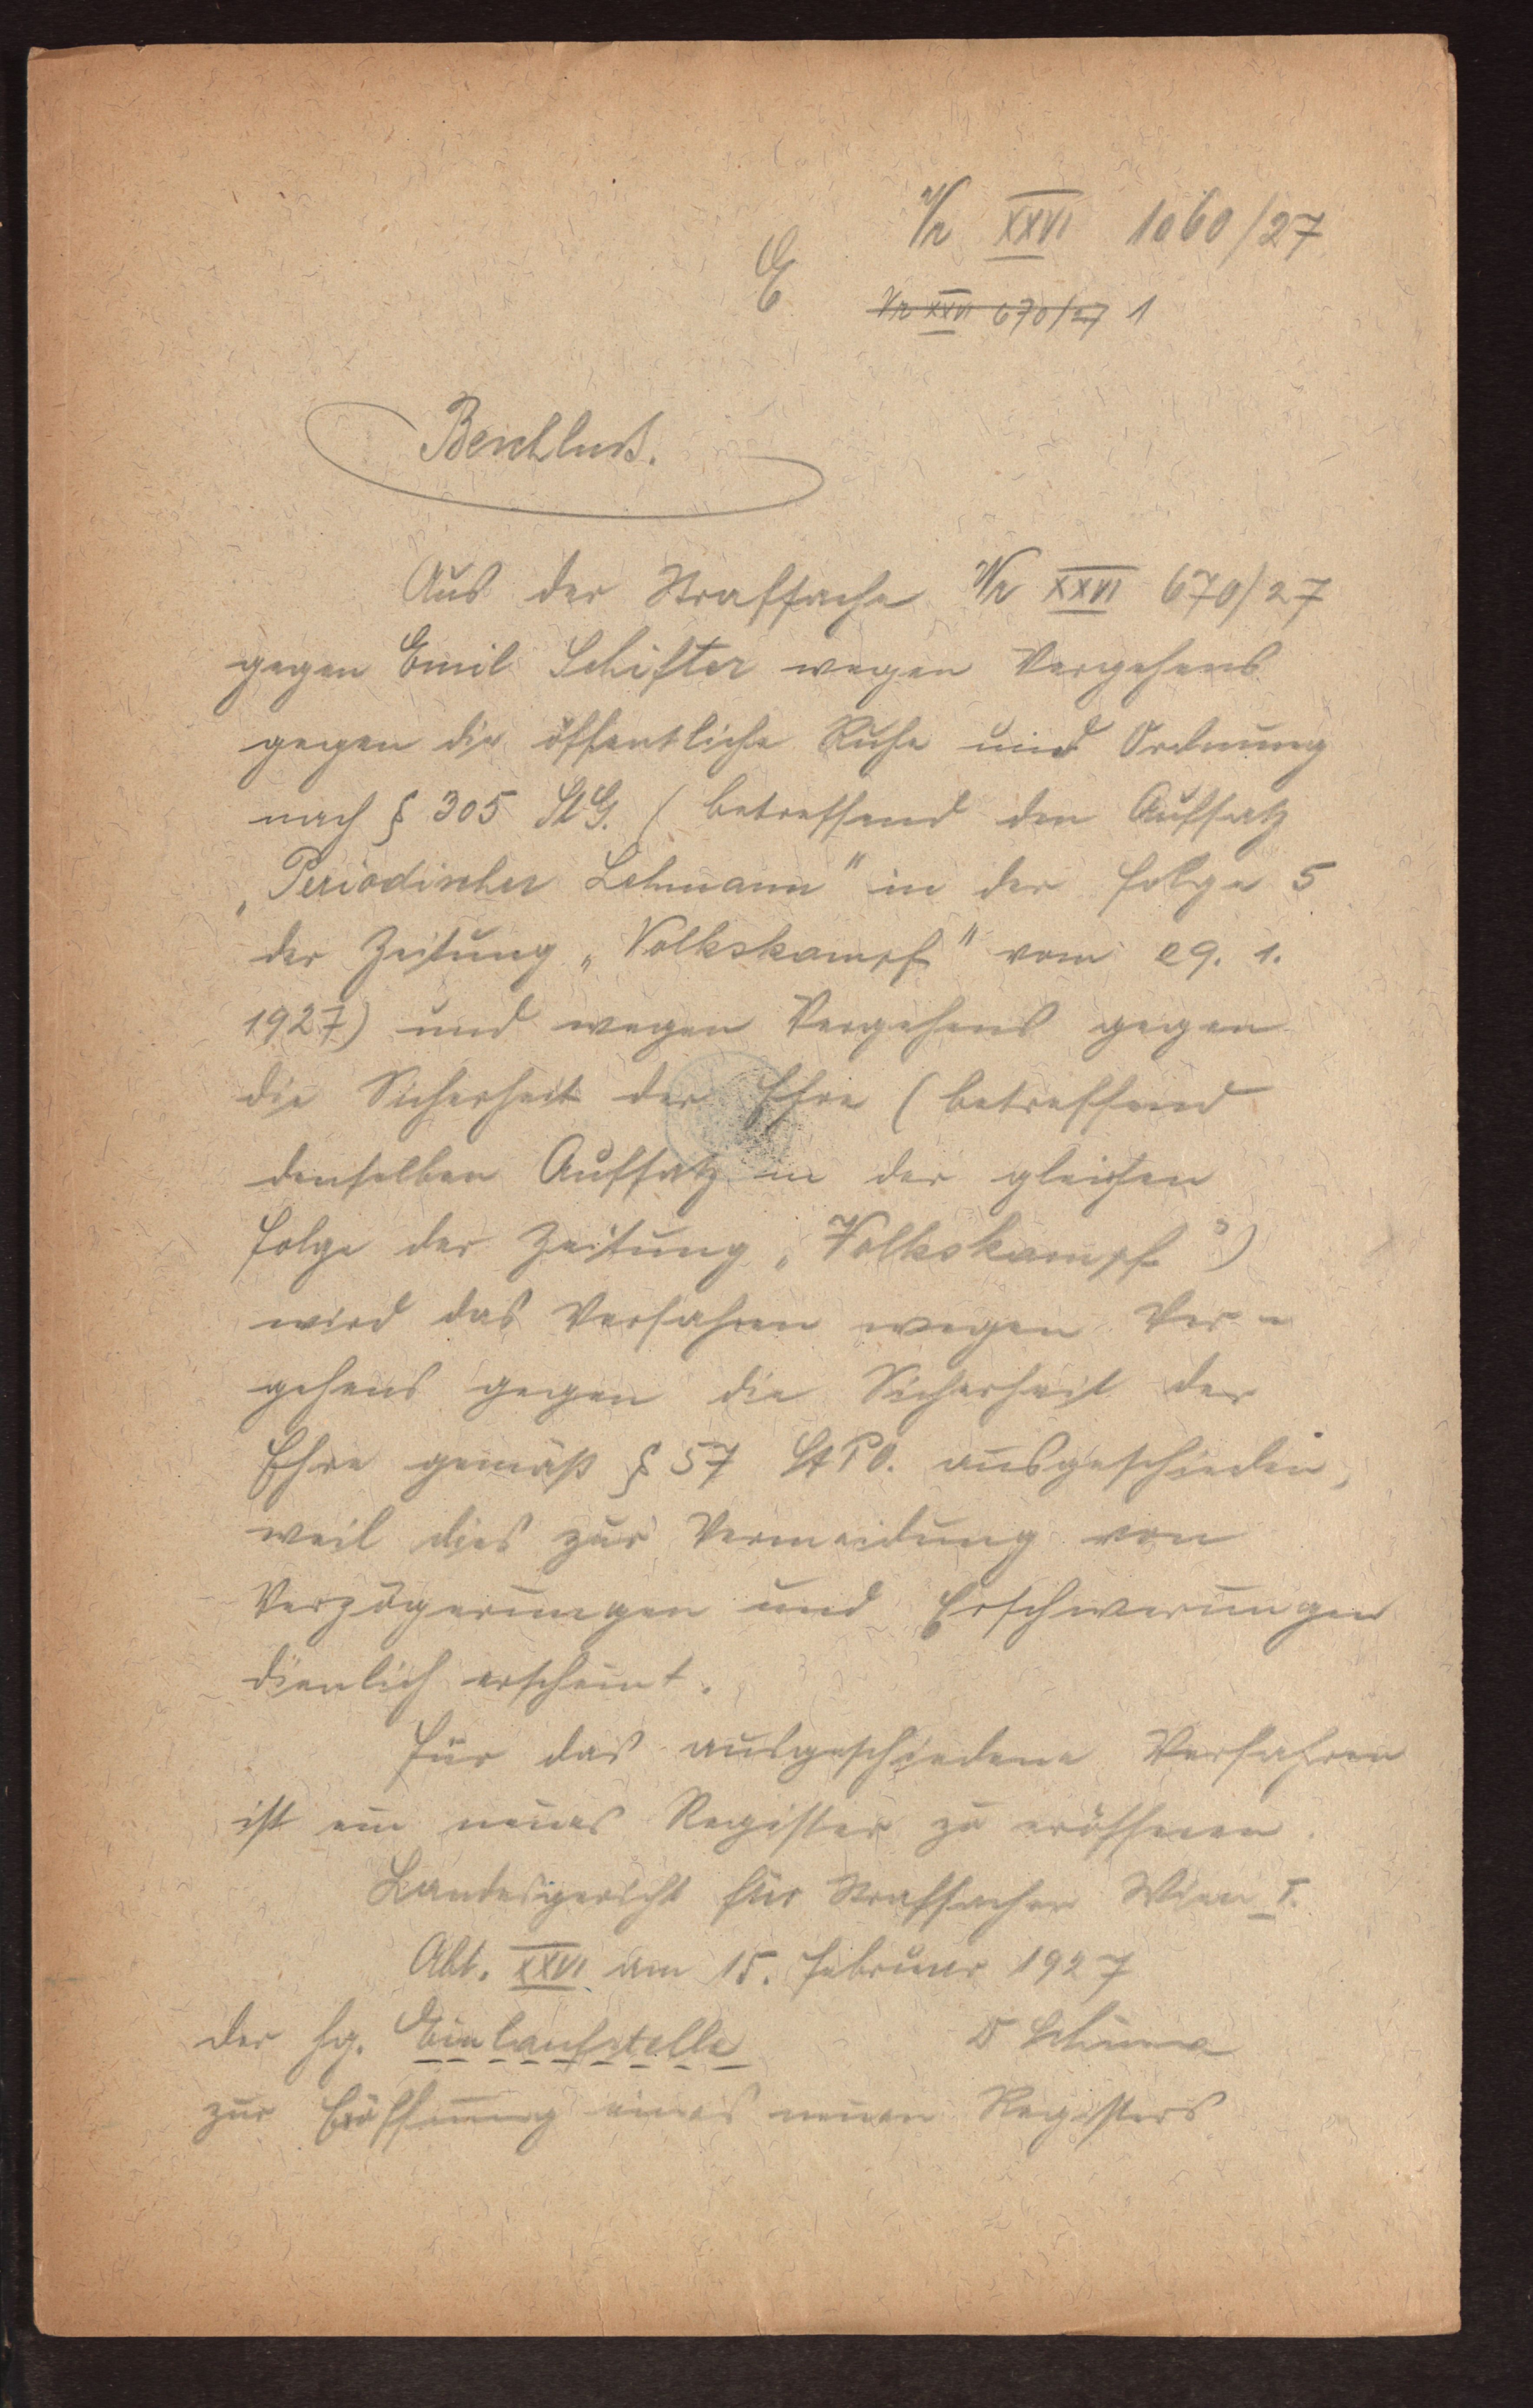 Vr XXVI 1060/27
E Vr XXVI 670/27 1
Beschluß.
Aus der Strafsache Vr XXVI 670/27
gegen Emil Schifter wegen Vergehens
gegen die öffentliche Ruhe und Ordnung
nach § 305 StG. (betreffend den Aufsatz
„Periodischer Lehmann" in der Folge 5
der Zeitung „Volkskampf" vom 29. 1.
1927) und wegen Vergehens gegen
die Sicherheit der Ehre (betreffend
denselben Aufsatz in der gleichen
Folge der Zeitung „Volkskampf")
wird das Verfahren wegen Ver-
gehens gegen die Sicherheit der
Ehre gemäß § 57 StPO. ausgeschieden,
weil dies zur Vermeidung von
Verzögerungen und Erschwerungen
dienlich erscheint.
Für das ausgeschiedene Verfahren
ist ein neues Register zu eröffnen.
Landesgericht für Strafsachen Wien I.
Abt. XXVI am 15. Februar 1927
der hg. Einlaufstelle
zur Eröffnung eines neuen Registers